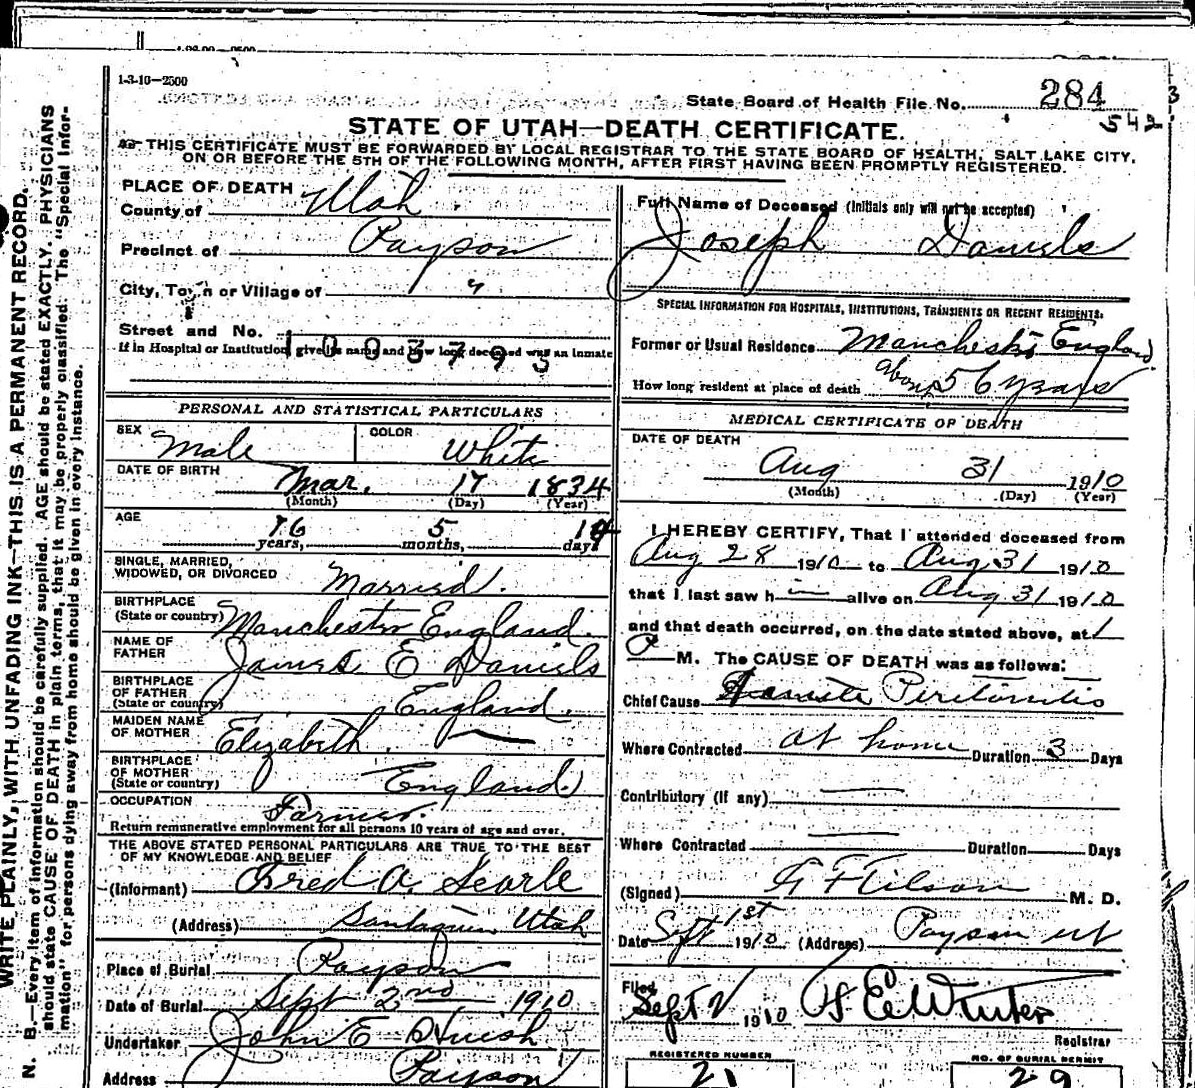 1-3-10—2500
State Board of Health File No. 284
542
STATE OF UTAH—DEATH CERTIFICATE.
THIS CERTIFICATE MUST BE FORWARDED BY LOCAL REGISTRAR TO THE STATE BOARD OF HEALTH, SALT LAKE CITY,
ON OR BEFORE THE 5TH OF THE FOLLOWING MONTH, AFTER FIRST HAVING BEEN PROMPTLY REGISTERED.
WRITE PLAINLY, WITH UNFADING INK—THIS IS A PERMANENT RECORD.
N. B.—Every item of information should be carefully supplied. AGE should be stated EXACTLY. PHYSICIANS
should state CAUSE OF DEATH in plain terms, that it may be properly classified. The "Special Infor-
mation" for persons dying away from home should be given in every instance.
PLACE OF DEATH
County of Utah
Precinct of Payson
City, Town or Village of "
Street and No.
If in Hospital or Institution, give its name and how long deceased was an inmate
PERSONAL AND STATISTICAL PARTICULARS
SEX Male COLOR White
DATE OF BIRTH
Mar. 17 1834
(Month) (Day) (Year)
AGE
76 years, 5 months, 14 days
SINGLE, MARRIED,
WIDOWED, OR DIVORCED Married.
BIRTHPLACE
(State or country) Manchester England.
NAME OF
FATHER James E Daniels
BIRTHPLACE
OF FATHER
(State or country) England.
MAIDEN NAME
OF MOTHER Elizabeth. —
BIRTHPLACE
OF MOTHER
(State or country) England.
OCCUPATION Farmer.
Return remunerative employment for all persons 10 years of age and over.
THE ABOVE STATED PERSONAL PARTICULARS ARE TRUE TO THE BEST
OF MY KNOWLEDGE AND BELIEF
(Informant) Fred A. Searle
(Address) Santaquin Utah
Place of Burial Payson
Date of Burial Sept 2nd 1910
Undertaker John E Huish
Address Payson
Full Name of Deceased (Initials only will not be accepted)
Joseph Daniels
SPECIAL INFORMATION FOR HOSPITALS, INSTITUTIONS, TRANSIENTS OR RECENT RESIDENTS.
Former or Usual Residence Manchester England
How long resident at place of death about 56 years
MEDICAL CERTIFICATE OF DEATH
DATE OF DEATH
Aug 31 1910
(Month) (Day) (Year)
I HEREBY CERTIFY, That I attended deceased from
Aug 28 1910 to Aug 31 1910
that I last saw him alive on Aug 31 1910
and that death occurred, on the date stated above, at 1
M. The CAUSE OF DEATH was as follows:
Chief Cause Acute Peritonitis
Where Contracted at home Duration 3 Days
Contributory (if any) —
Where Contracted — Duration Days
(Signed) M. D.
Date Sept 1st 1910 (Address) Payson Ut
Filed
Sept 2 1910 Winter
Registrar
REGISTERED NUMBER
21
NO. OF BURIAL PERMIT
29